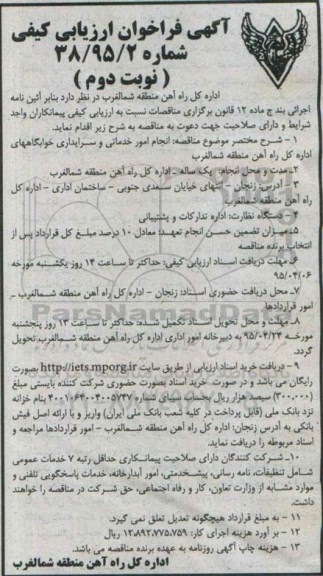 آگهی فراخوان ارزیابی کیفی
شماره ۳۸/۹۵/۲
( نوبت دوم )
اداره کل راه آهن منطقه شمالغرب در نظر دارد بنابر آئین نامه
اجرائی بند ج ماده ۱۲ قانون برگزاری مناقصات نسبت به ارزیابی کیفی پیمانکاران واجد
شرایط و دارای صلاحیت جهت دعوت به مناقصه به شرح زیر اقدام نماید.
۱ - شرح مختصر موضوع مناقصه: انجام امور خدماتی و سرایداری خوابگاههای
اداره کل راه آهن منطقه شمالغرب
۲ـ مدت و محل انجام: یک ساله ـ اداره کل راه آهن منطقه شمالغرب
۳ـ آدرس: زنجان - انتهای خیابان سعدی جنوبی - ساختمان اداری - اداره کل
راه آهن منطقه شمالغرب
۴ـ دستگاه نظارت: اداره تدارکات و پشتیبانی
۵ـ میزان تضمین حسن انجام تعهد: معادل ۱۰ درصد مبلغ کل قرارداد پس از
انتخاب برنده مناقصه
۶ـ مهلت دریافت اسناد ارزیابی کیفی: حداکثر تا ساعت ۱۴ روز یکشنبه مورخه
۹۵/۰۴/۰۶
۷ـ محل دریافت حضوری اسناد: زنجان - اداره کل راه آهن منطقه شمالغرب ـ
امور قراردادها
ParsNamadData
۸ـ مهلت و محل تحویل اسناد تکمیل شده: حداکثر تا ساعت ۱۳ روز پنجشنبه
مورخه ۹۵/۰۴/۲۴ به دبیرخانه امور اداری اداره کل راه آهن منطقه شمالغرب تحویل
گردد.
۹ - دریافت خرید اسناد ارزیابی از طریق سایت http://iets.mporg.ir بصورت
رایگان می باشد و در صورت خرید اسناد بصورت حضوری شرکت کننده بایستی مبلغ
(۳۰۰/۰۰۰) سیصد هزار ریال بحساب سیبای شماره ۴۰۰۱۰۶۴۰۰۴۰۰۵۷۴۷ بنام خزانه
نزد بانک ملی (قابل پرداخت در کلیه شعب بانک ملی ایران) واریز و با ارائه اصل فیش
بانکی به آدرس زنجان: اداره کل راه آهن منطقه شمالغرب - امور قراردادها مراجعه و
اسناد مربوطه را دریافت نماید.
۱۰ـ شرکت کنندگان دارای صلاحیت پیمانکاری حداقل رتبه ۷ خدمات عمومی
شامل تنظیفات، نامه رسانی، پیشخدمتی، امور آبدارخانه، خدمات پاسخگویی تلفنی و
موارد مشابه از وزارت تعاون، کار و رفاه اجتماعی، حق شرکت در مناقصه را خواهند
داشت.
۱۱ - به مبلغ قرارداد هیچگونه تعدیل تعلق نمی گیرد.
۱۲ - بر آورد هزینه اجرای کار: ۱۲،۸۹۲،۷۷۵،۷۵۹ ریال
۱۳ - هزینه چاپ آگهی روزنامه به عهده برنده مناقصه می باشد.
اداره کل راه آهن منطقه شمالغرب